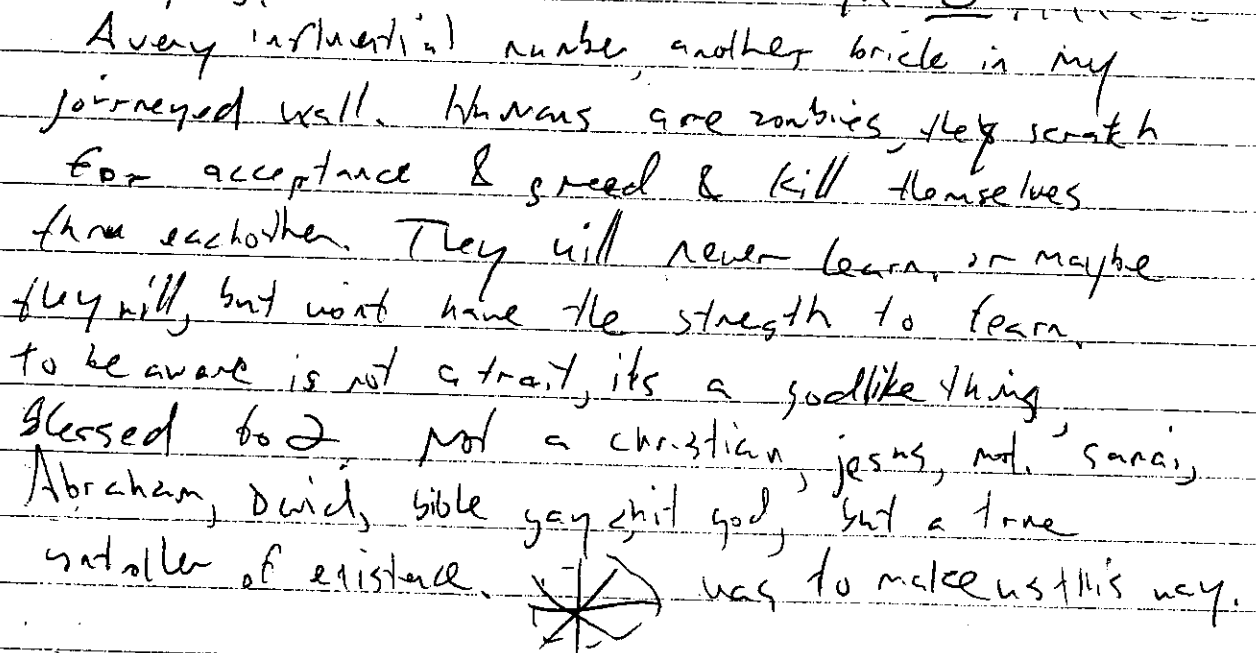 A very influential number, another brick in my
journeyed wall. Humans are zombies, they scratch
for acceptance & greed & kill themselves
thru eachother. They will never learn, or maybe
they will, but wont have the stregth to fearn.
to be aware is not a trait, its a godlike thing,
Blessed to 2 not a christian, jesus, mod. sarai,
Abraham, David, bible gay shit god, but a true
controller of existence. was to make us this way.